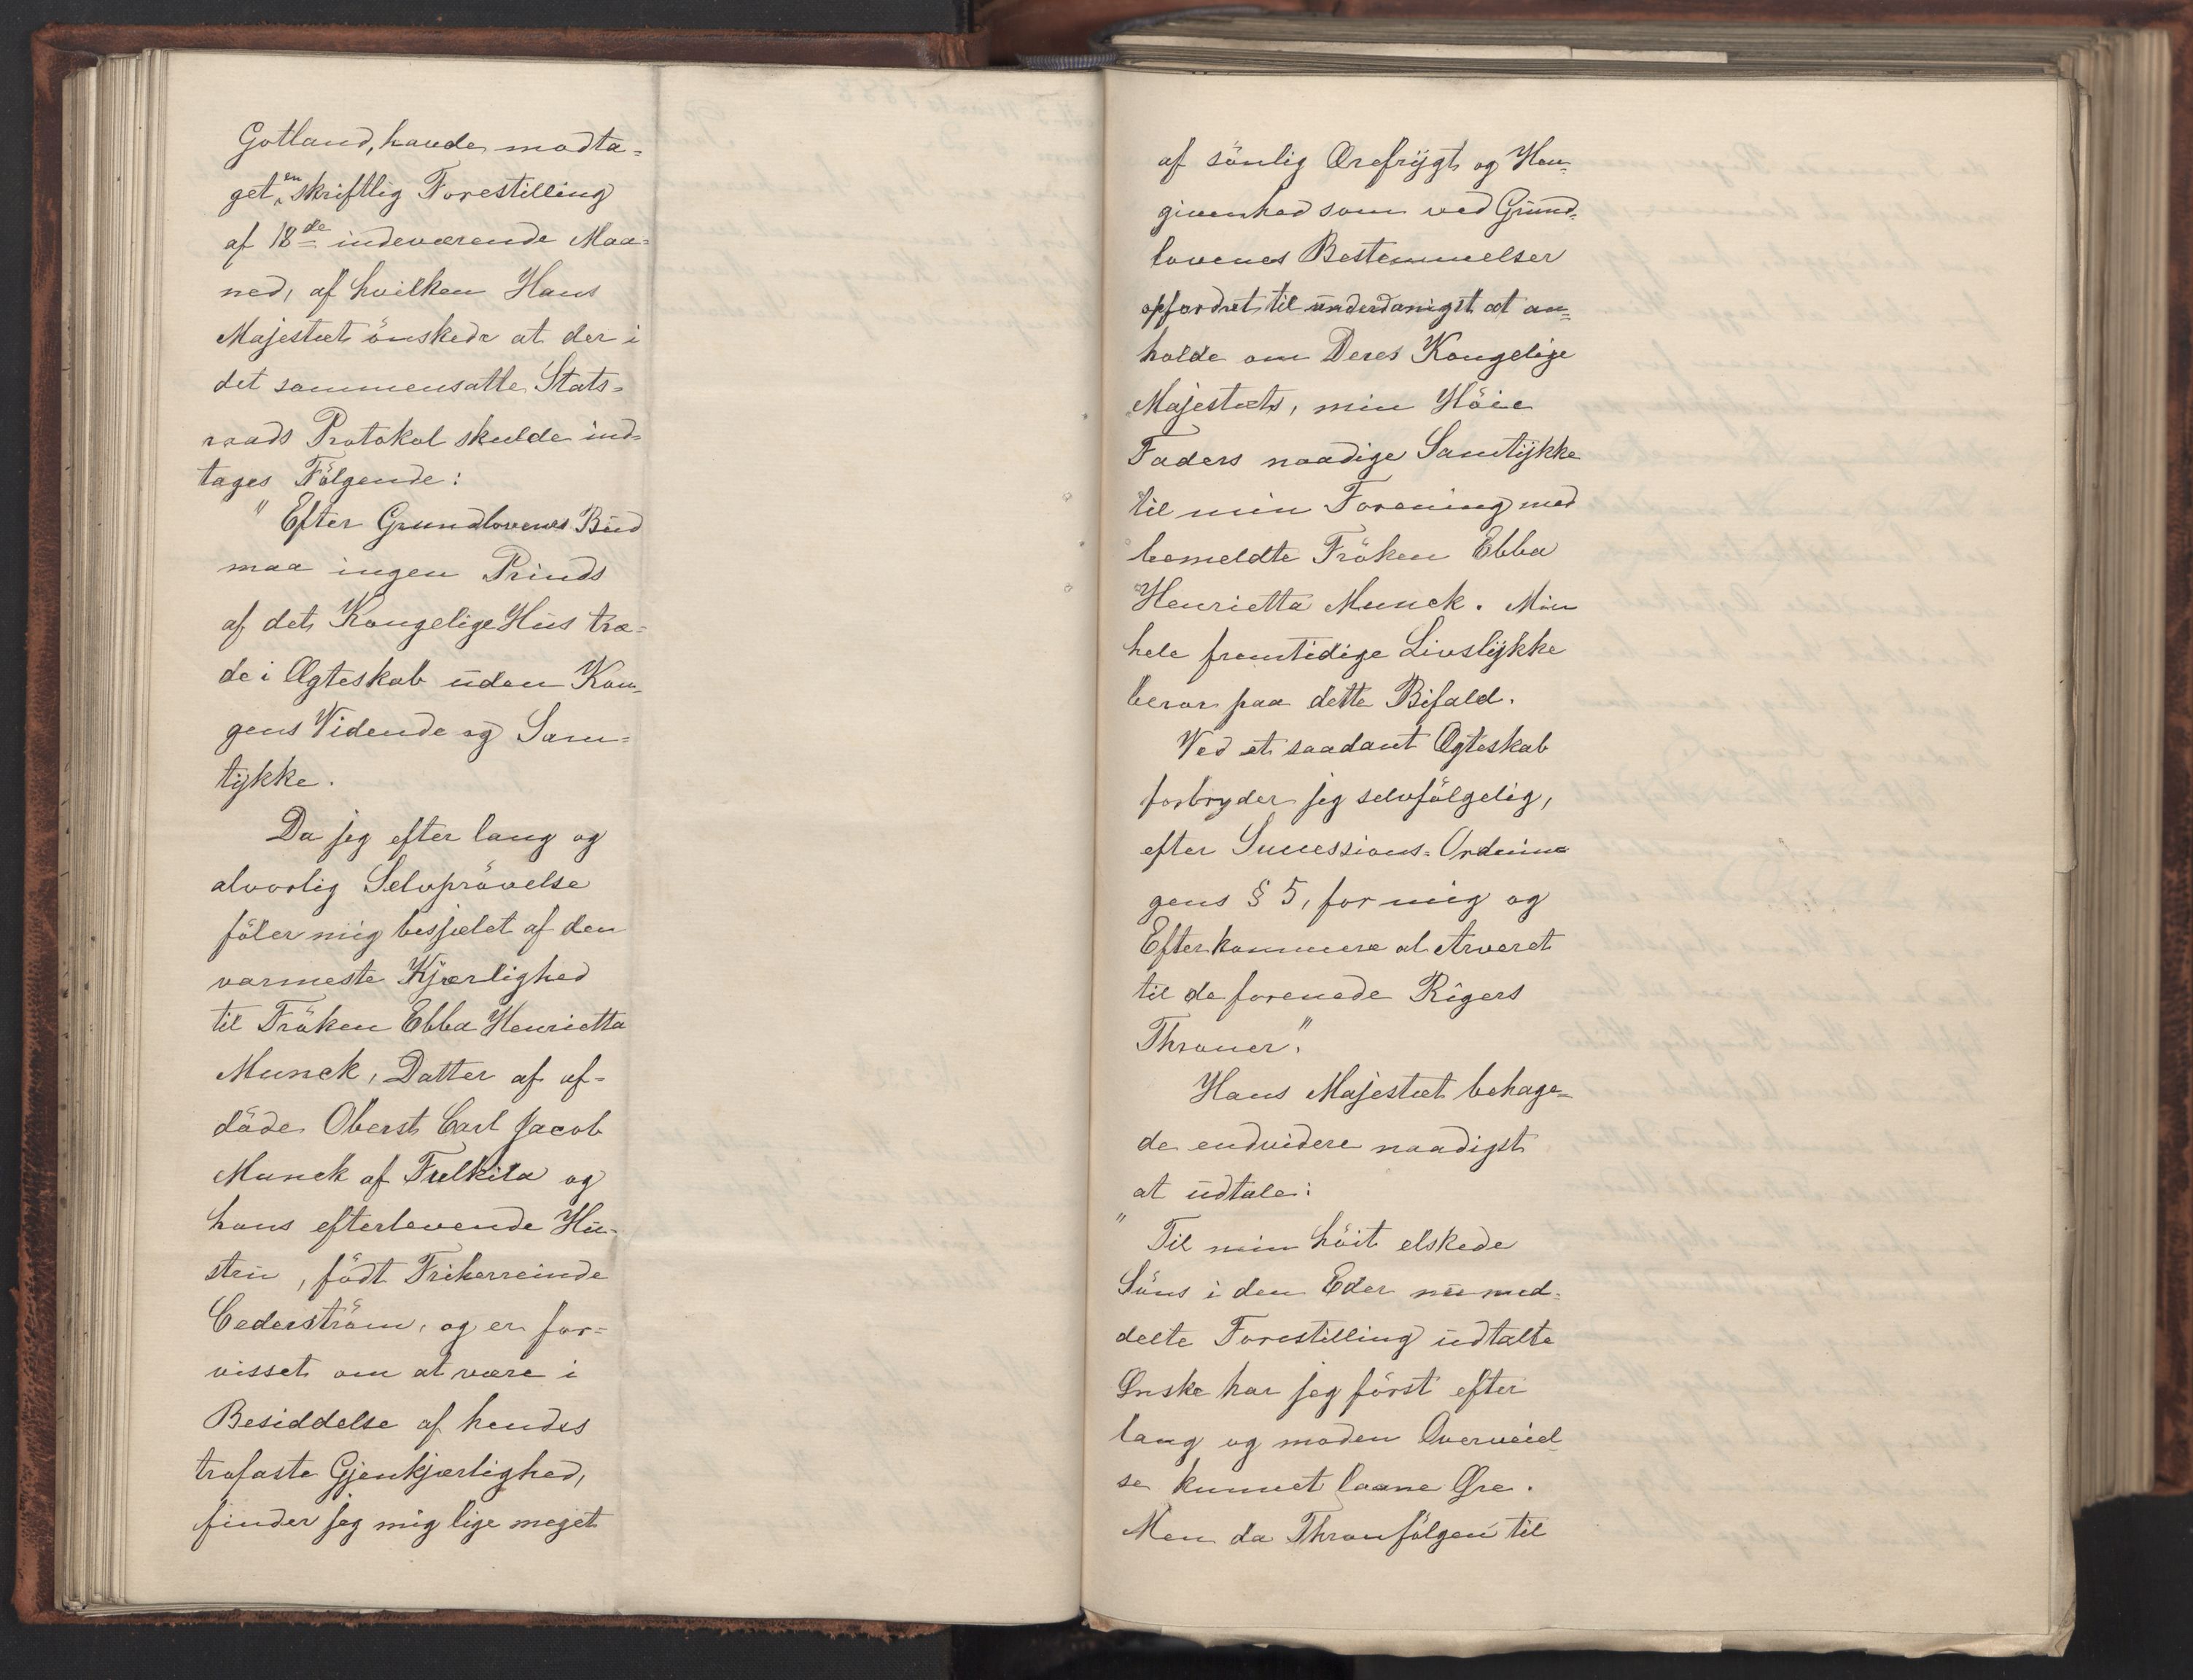 Gotland, havde modta-
get en skriftlig Forestilling
af 18de indeværende Maa-
ned, af hvilken Hans
Majestæt önskede at der i
det sammensatte Stats-
raads Protokol skulde ind-
tages Fölgende:
" Efter Grundlovenes Bud
maa ingen Prinds
af det Kongelige Hus træ-
de i Ægteskab uden Kon-
gens Vidende og Sam-
tykke.
Da jeg efter lang og
alvorlig Selvprövelse
föler mig besjælet af den
varmeste Kjærlighed
til Fröken Ebba Henrietta
Munck, Datter af af-
döde Oberst Carl Jacob
Munck af Fulkila og
hans efterlevende Hu-
stru, födt Friherreinde
Cederström, og er for-
visset om at være i
Besiddelse af hendes
trofaste Gjenkjærlighed,
finder jeg mig lige meget
af sönlig Ærefrygt og Hen-
givenhed som ved Grund-
lovenes Bestemmelser
opfordret til underdanigst at an-
holde om Deres Kongelige
Majestæts, min Höie
Faders naadige Samtykke
til min Forening med
bemeldte Fröken Ebba
Henrietta Munck. Min
hele fremtidige Livslykke
beror paa dette Bifald.
Ved et saadant Ægteskab
forbryder jeg selvfölgelig,
efter Successions-Ordnin
gens § 5, for mig og
Efterkommere al Arveret
til de forenede Rigers
Throner."
Hans Majestæt behage-
de endvidere naadigst
at udtale:
" Til min höit elskede
Söns i den Eder nu med-
delte Forestilling udtalte
Ønske har jeg först efter
lang og moden Overveiel-
se kunnet laane Øre.
Men da Thronfölgen til